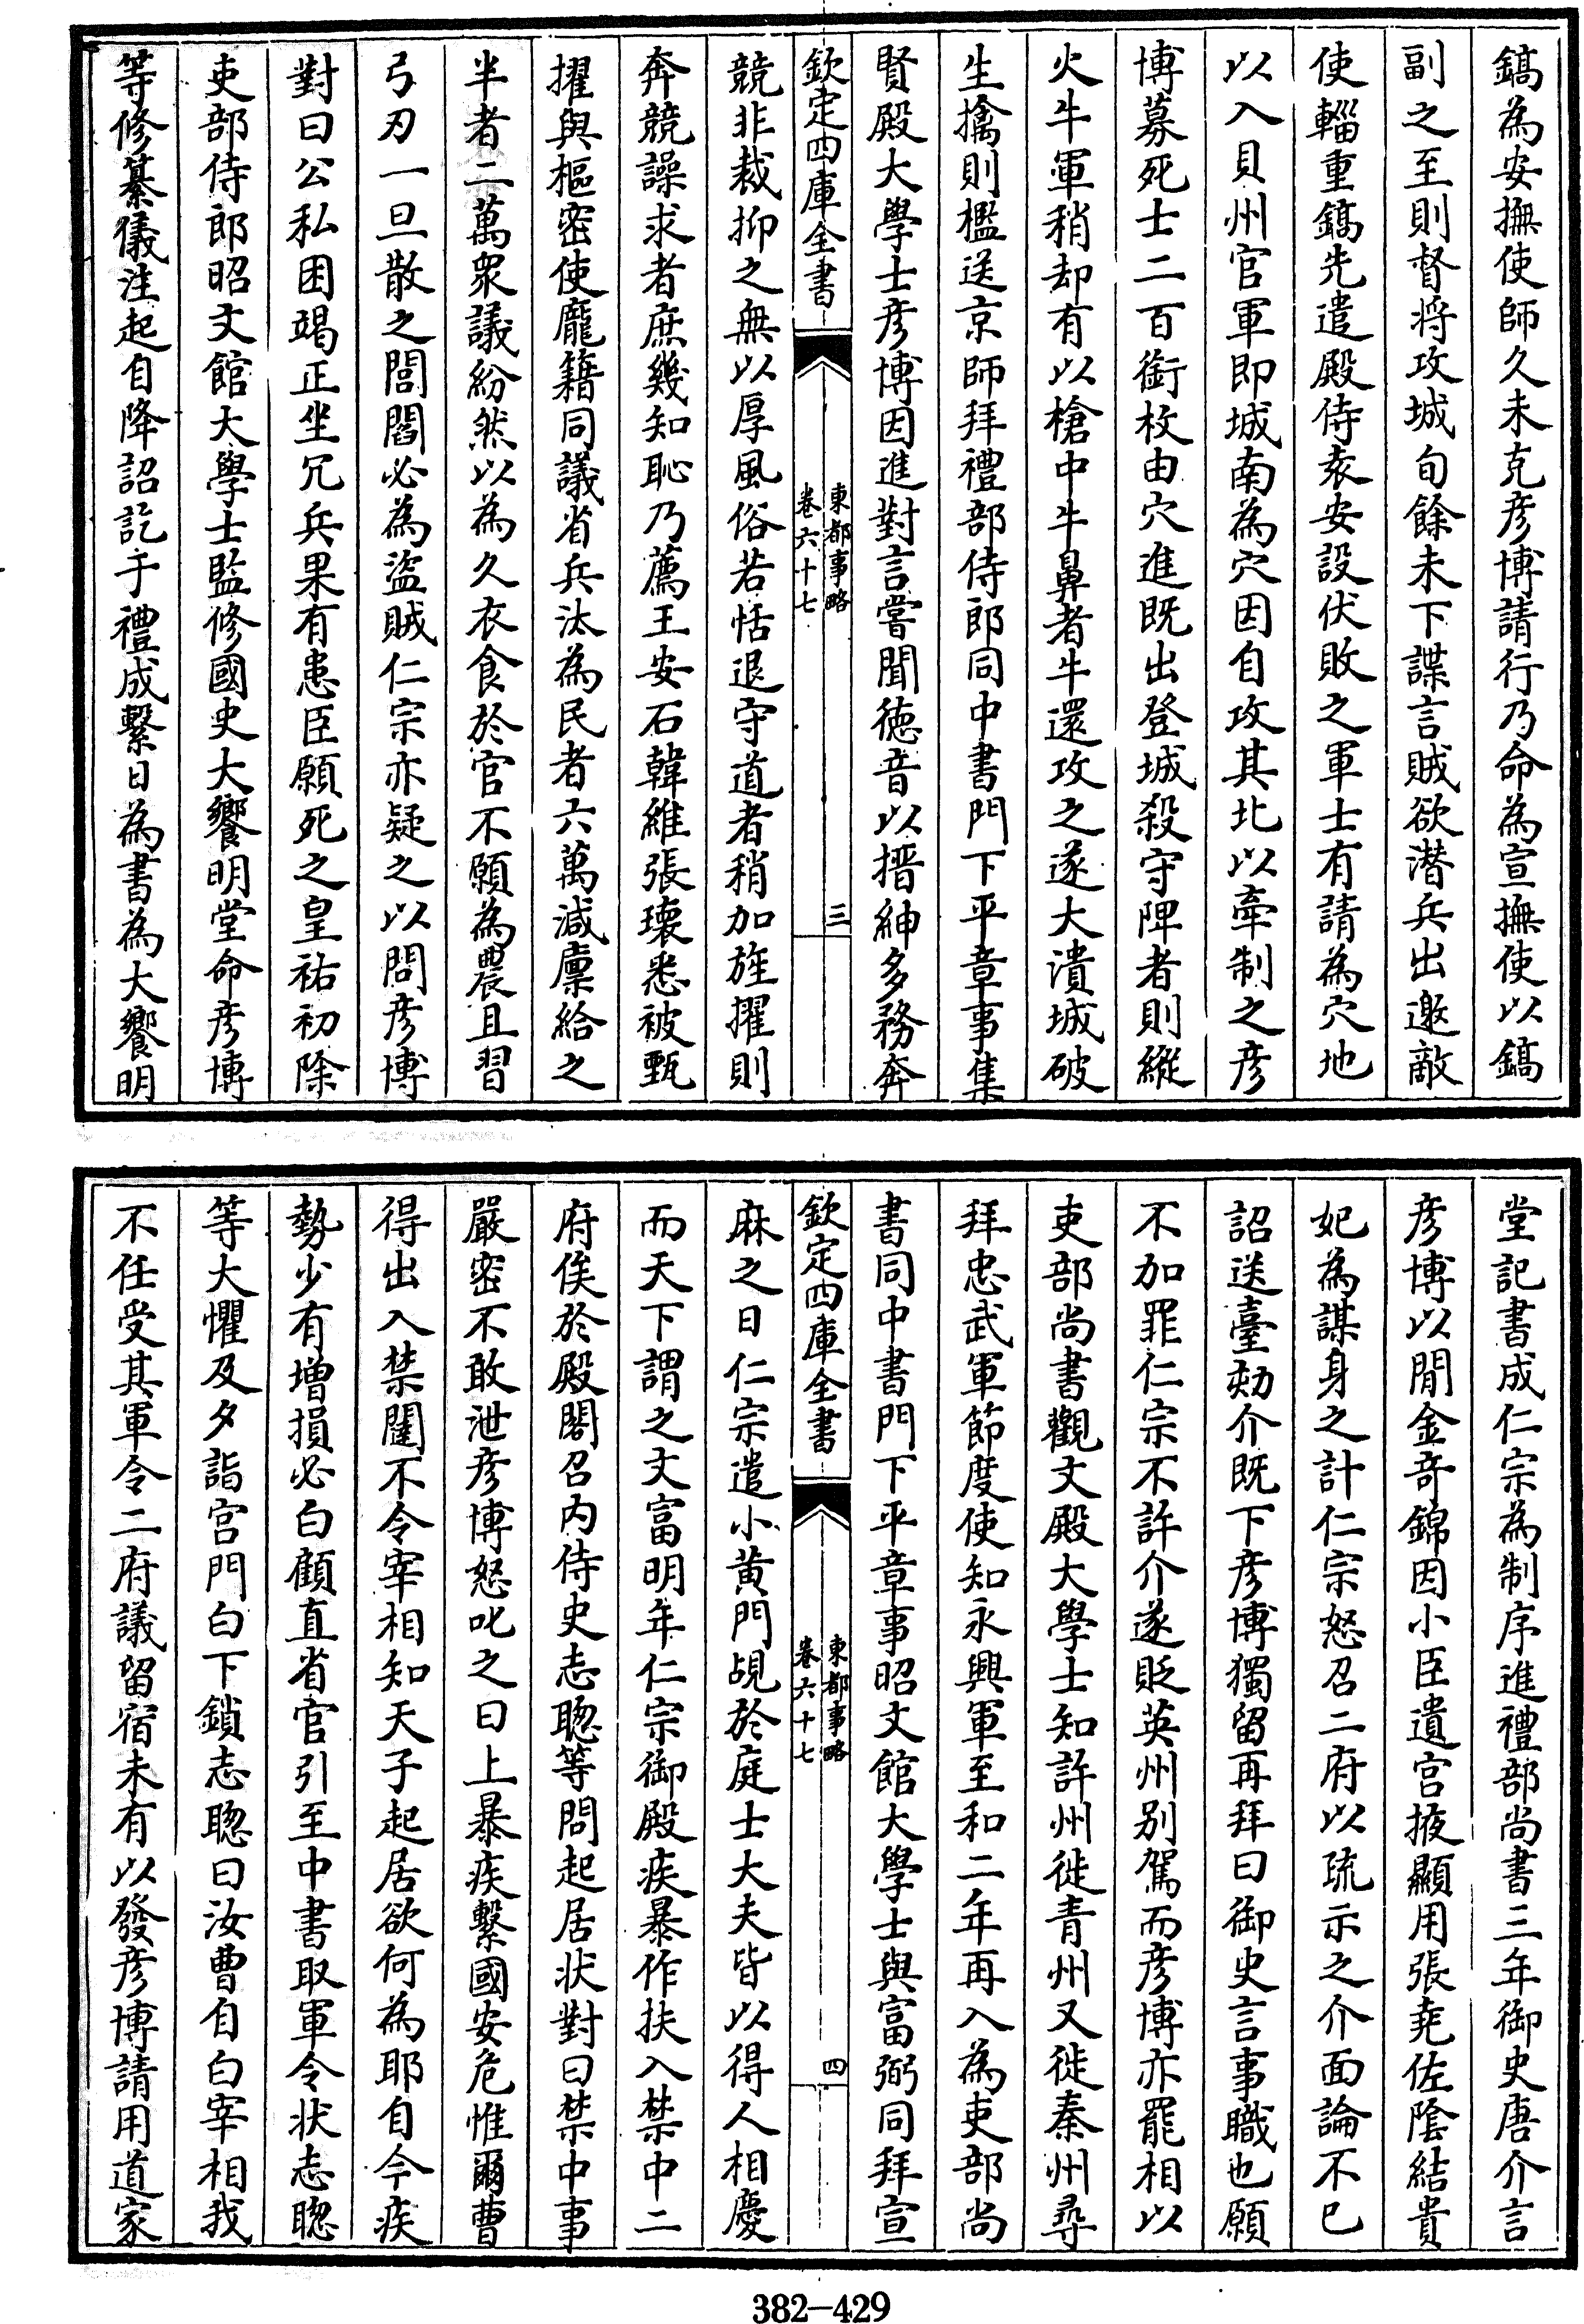 鎬為安撫使師久未克彦博請行乃命為宣撫使以鎬
副之至則督將攻城旬餘未下諜言賊欲潜兵出邀敵
使輜重鎬先遣殿侍袁安設伏敗之軍士有請為穴地
以入貝州官軍即城南為穴因自攻其北以牽制之彦
博募死士二百銜枚由穴進既出登城殺守陴者則縱
火牛軍稍却有以槍中牛鼻者牛還攻之遂大潰城破
生擒則檻送京師拜禮部侍郎同中書門下平章事集
賢殿大學士彦博因進對言嘗聞徳音以搢紳多務奔
欽定四庫全書
東都事略
卷六十七
三
競非裁抑之無以厚風俗若恬退守道者稍加旌擢則
奔競譟求者庶幾知恥乃薦王安石韓維張瓌悉被甄
擢與樞密使龎籍同議省兵汰為民者六萬減廩給之
半者二萬衆議紛然以為久衣食於官不願為農且習
弓刃一旦散之閭閻必為盜賊仁宗亦疑之以問彦博
對曰公私困竭正坐冗兵果有患臣願死之皇祐初除
吏部侍郎昭文館大學士監修國史大饗明堂命彦博
等修纂儀注起自降詔訖于禮成繫日為書為大饗明
堂記書成仁宗為制序進禮部尚書三年御史唐介言
彦博以間金奇錦因小臣遺宫掖顯用張堯佐陰結貴
妃為謀身之計仁宗怒召二府以疏示之介面論不已
詔送臺劾介既下彦博獨留再拜曰御史言事職也願
不加罪仁宗不許介遂貶英州别駕而彦博亦罷相以
吏部尚書觀文殿大學士知許州徙青州又徙秦州尋
拜忠武軍節度使知永興軍至和二年再入為吏部尚
書同中書門下平章事昭文館大學士與富弼同拜宣
欽定四庫全書
東都事略
卷六十七
四
麻之日仁宗遣小黄門覘於庭士大夫皆以得人相慶
而天下謂之文富明年仁宗御殿疾暴作扶入禁中二
府俟於殿閣召内侍史志聰等問起居状對曰禁中事
嚴密不敢泄彦博怒叱之曰上暴疾繫國安危惟爾曹
得出入禁闥不令宰相知天子起居欲何為耶自今疾
勢少有増損必白顧直省官引至中書取軍令状志聰
等大懼及夕詣宫門白下鎖志聰曰汝曹自白宰相我
不任受其軍令二府議留宿未有以發彦博請用道家
382-429